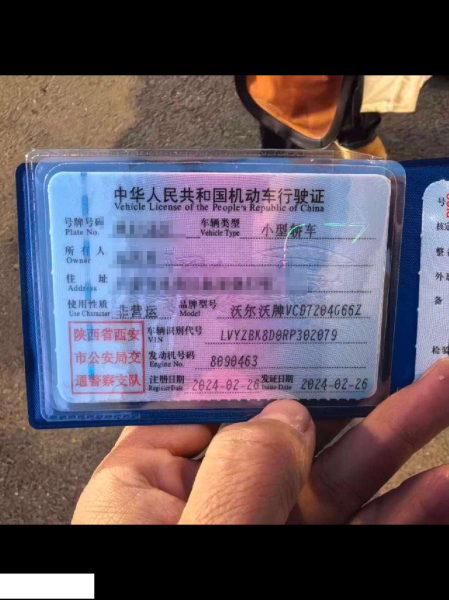 中华人民共和国机动车行驶证
Vehicle License of the People's Republic of China
号牌号码 车辆类型 小型轿车
Plate No. Vehicle Type
所有人
Owner
住址
Address
使用性质 非营运 品牌型号 沃尔沃牌VCD7204G66Z
Use Character Model
陕西省西安 车辆识别代号 LVYZBK8D0RP302079
VIN
市公安局交 发动机号码 8090463
Engine No.
通警察支队 注册日期 2024-02-26 发证日期 2024-02-26
Register Date Issue Date
号
核定
整
外
备
检验